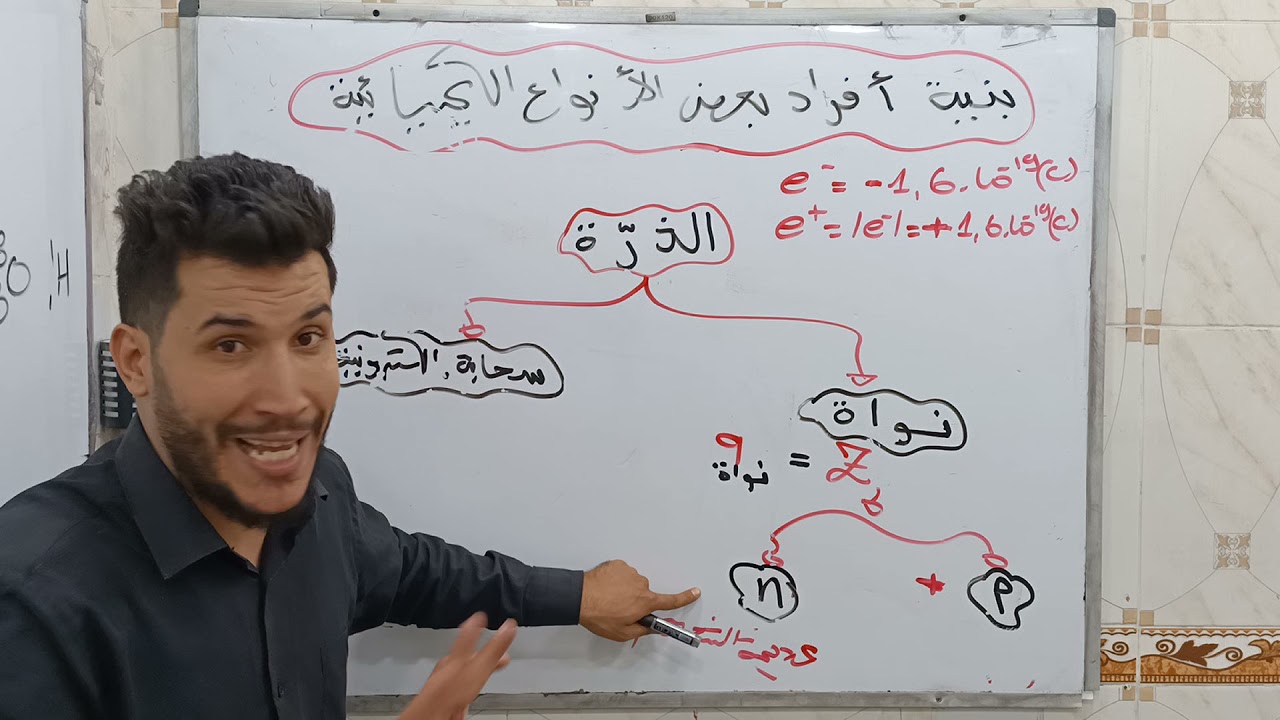 بنية أفراد بعض الأنواع الكيميائية
e⁻ = -1,6.10⁻¹⁹(c)
e⁺ = |e⁻| = +1,6.10⁻¹⁹(c)
الذرّة
سحابة
نواة
q نواة = Z
n + p
عديمة
H
O